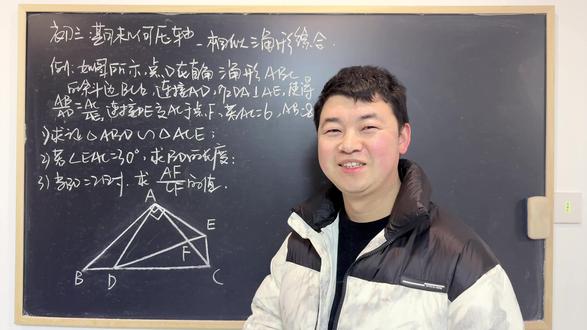 初三期末几何压轴-相似三角形综合.
例:如图所示,点D在直角三角形ABC
的斜边BC上,连接AD,作DA⊥AE,使得
AB/AD=AC/AE,连接DE交AC于点F,若AC=6,AB=8
1)求证△ABD∽△ACE;
2)若∠EAC=30°,求BD的长度;
3)当BD=2时,求AF/CF的值.
A
E
F
B D C